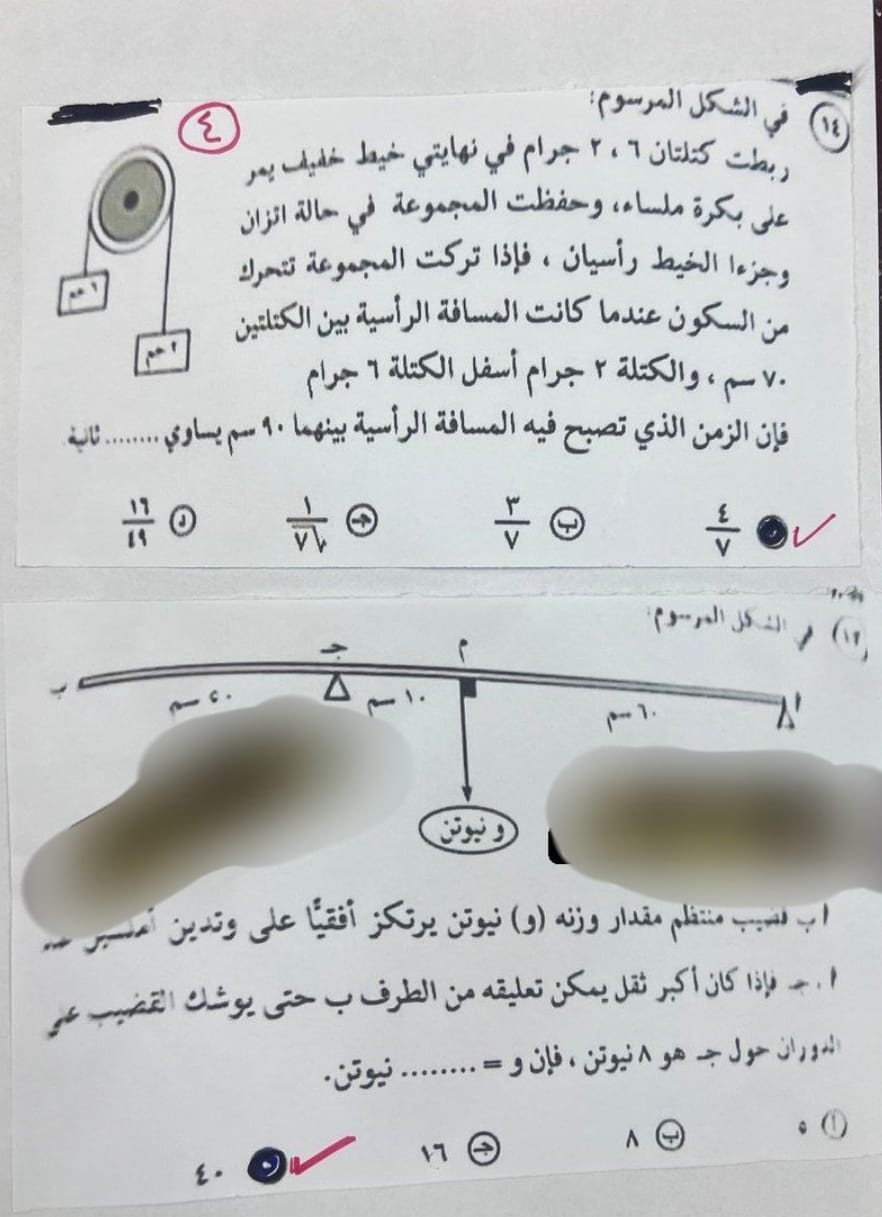 ١٤ في الشكل المرسوم:
٤
ربطت كتلتان ٦ ، ٢ جرام في نهايتي خيط خفيف يمر
على بكرة ملساء، وحفظت المجموعة في حالة اتزان
وجزءا الخيط رأسيان ، فإذا تركت المجموعة تتحرك
من السكون عندما كانت المسافة الرأسية بين الكتلتين
٧٠ سم ، والكتلة ٢ جرام أسفل الكتلة ٦ جرام
فإن الزمن الذي تصبح فيه المسافة الرأسية بينهما ٩٠ سم يساوي ........ ثانية.
٦ جم
٢ جم
٤/٧ ب ٣/٧ ج د ١٦/٤٩
في الشكل المرسوم:
ب ج م أ
٤٠ سم ١٠ سم ٦٠ سم
و نيوتن
أ ب قضيب منتظم مقدار وزنه (و) نيوتن يرتكز أفقيًّا على وتدين
أ ، جـ فإذا كان أكبر ثقل يمكن تعليقه من الطرف ب حتى يوشك القضيب على
الدوران حول جـ هو ٨ نيوتن ، فإن و = ........ نيوتن.
أ ٥ ب ٨ ج ١٦ ٤٠